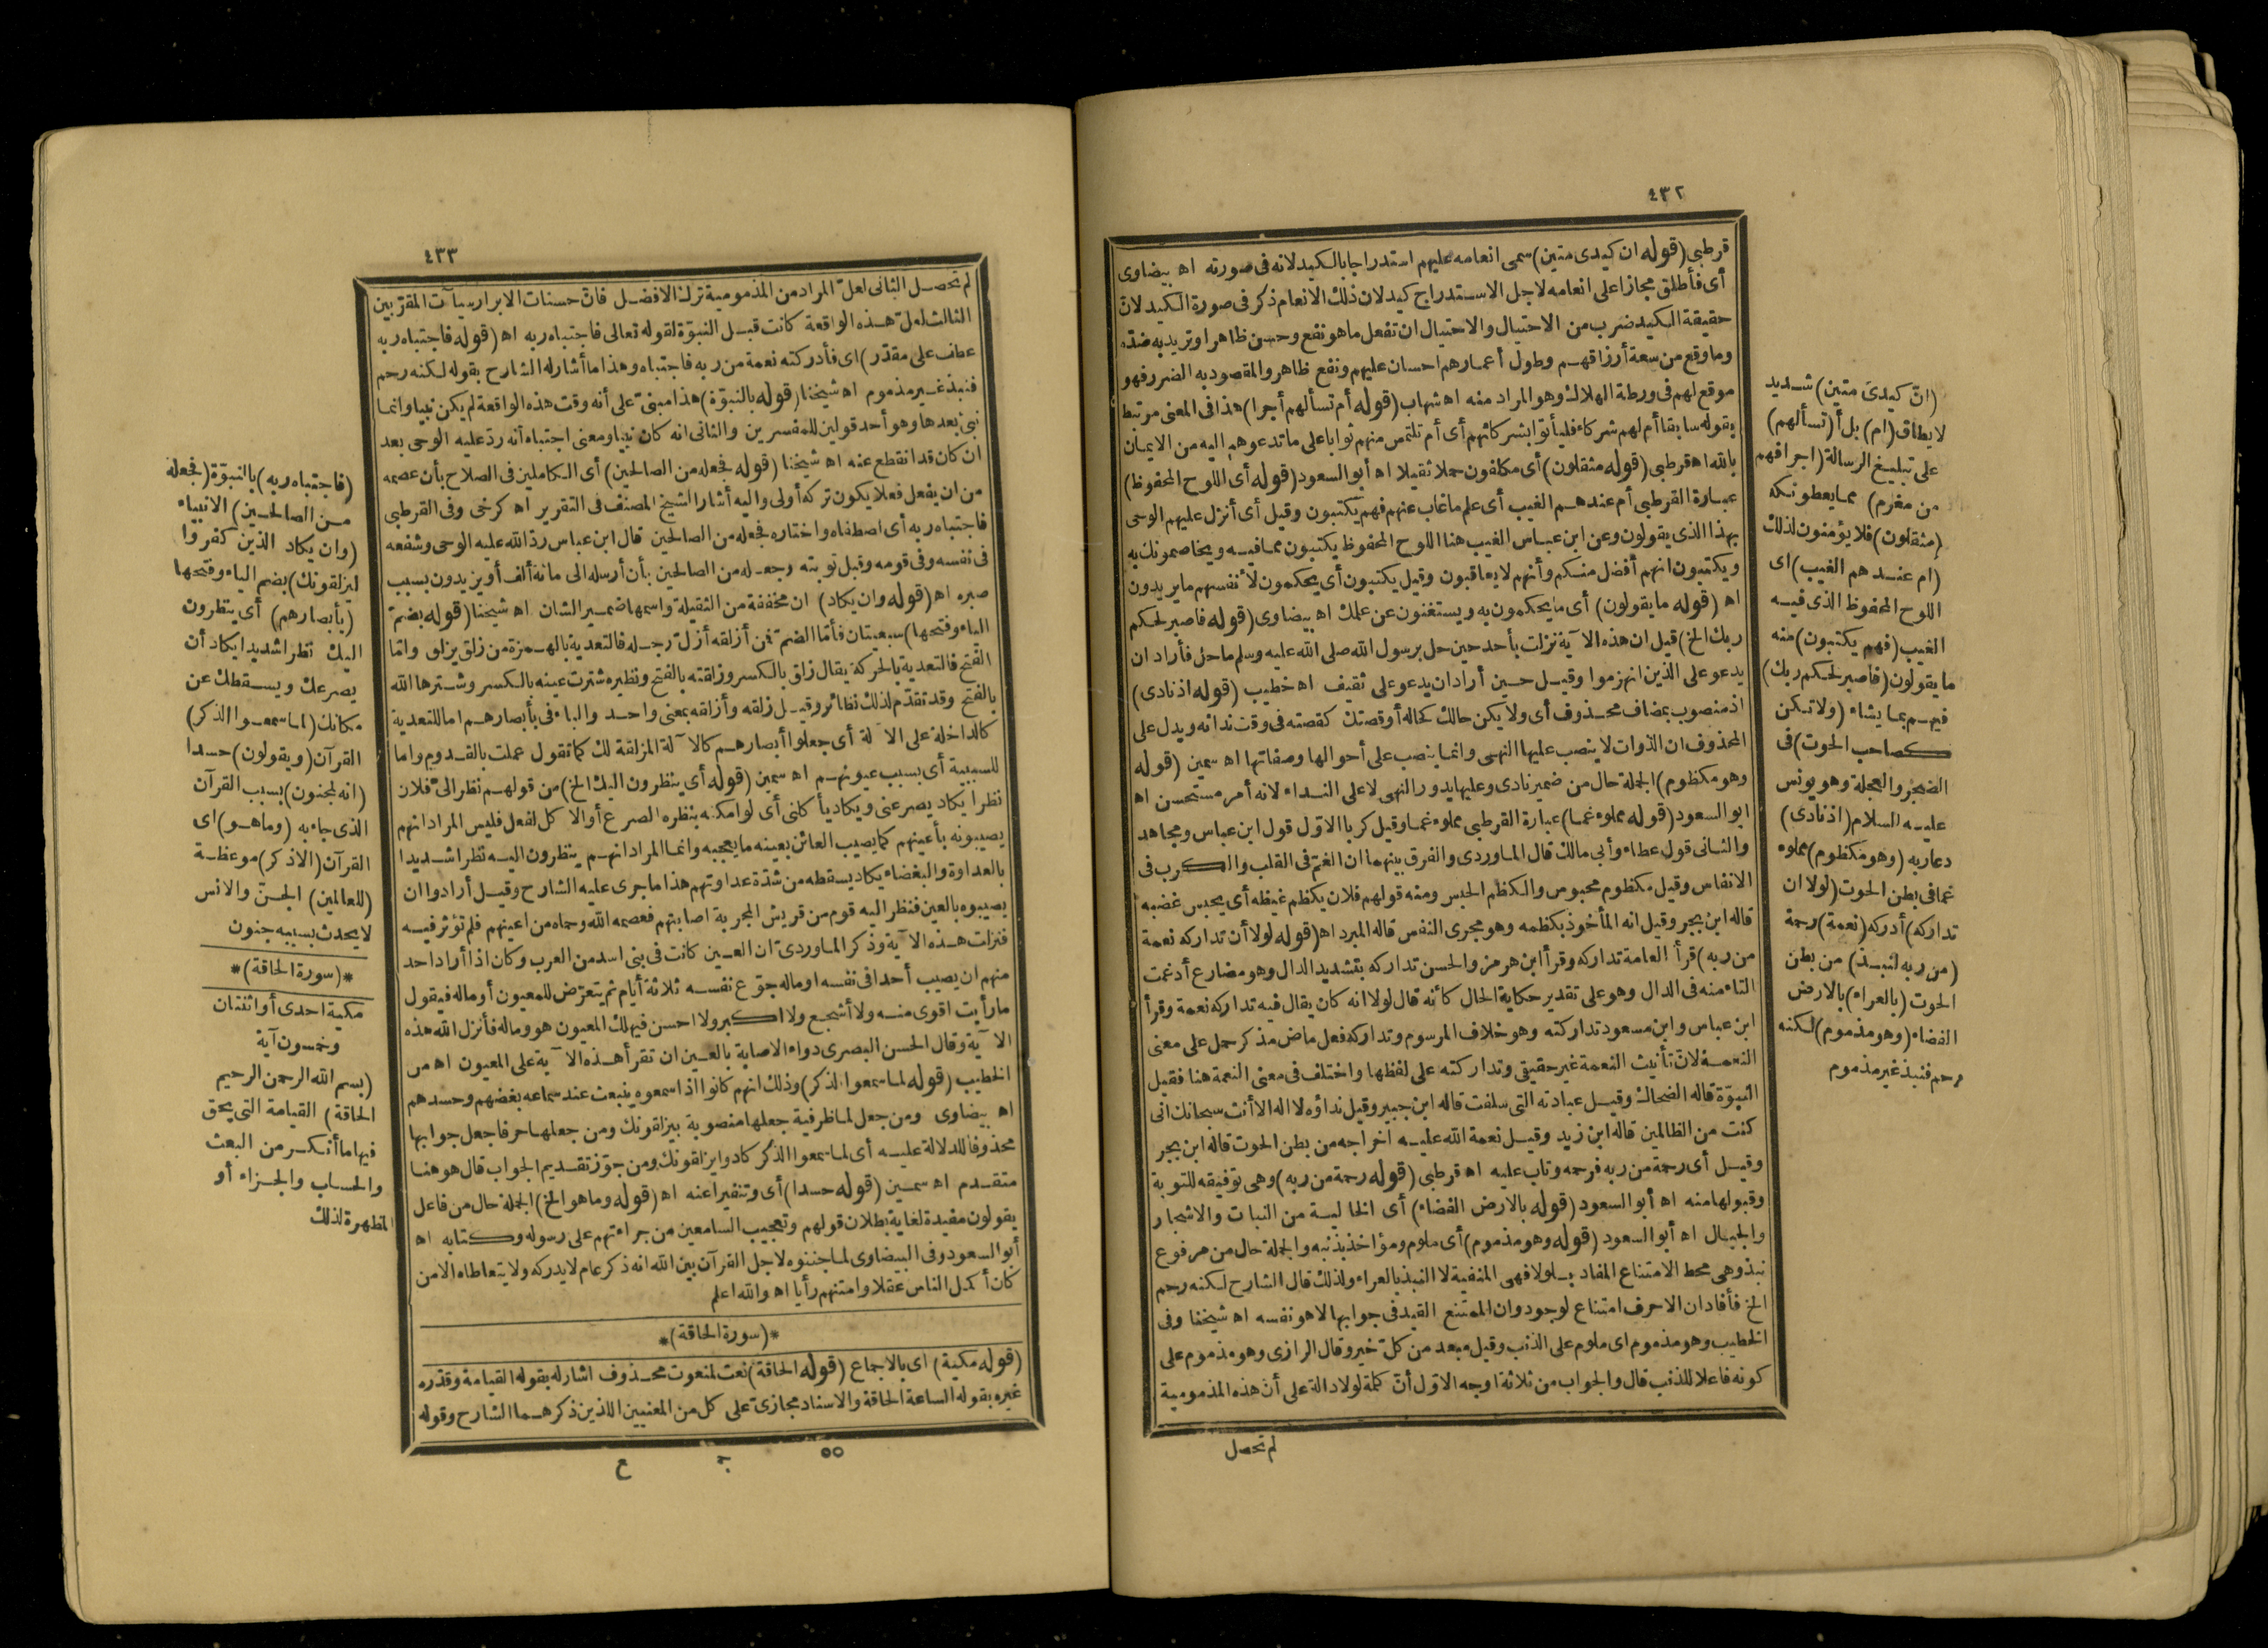 ٤٣٢
قرطبى (قوله ان كيدى متين) سمى انعامه عليهم استدراجا بالكيد لانه فى صورته اه بيضاوى
أى فأطلق مجازا على انعامه لاجل الاستدراج كيد لان ذلك الانعام ذكر فى صورة الكيد لان
حقيقة الكيد ضرب من الاحتيال والاحتيال ان تفعل ما هو نفع وحسن ظاهرا وتريد به ضده
وما وقع من سعة أرزاقهم وطول أعمارهم احسان عليهم ونفع ظاهر والمقصود به الضرر فهو
موقع لهم فى ورطة الهلاك وهو المراد منه اه شهاب (قوله أم تسألهم أجرا) هذا فى المعنى مرتبط
بقوله سابقا أم لهم شركاء فليأتوا بشركائهم أى أم تلتمس منهم ثوابا على ما تدعوهم اليه من الايمان
بالله اه قرطبى (قوله مثقلون) أى مكلفون حملا ثقيلا اه أبو السعود (قوله أى اللوح المحفوظ)
عبارة القرطبى أم عندهم الغيب أى علم ما غاب عنهم فهم يكتبون وقيل أى أنزل عليهم الوحى
بهذا الذى يقولون وعن ابن عباس الغيب هنا اللوح المحفوظ يكتبون مما فيه ويخاصمونك به
ويكتبون انهم أفضل منكم وأنهم لا يعاقبون وقيل يكتبون أى يحكمون لأنفسهم ما يريدون
اه (قوله ما يقولون) أى ما يحكمون به ويستغنون عن علمك اه بيضاوى (قوله فاصبر لحكم
ربك الخ) قيل ان هذه الآية نزلت بأحد حين حل برسول الله صلى الله عليه وسلم ما حل فأراد ان
يدعو على الذين انهزموا وقيل حين أراد ان يدعو على ثقيف اه خطيب (قوله اذ نادى)
اذ منصوب بمضاف محذوف أى ولا يكن حالك كحاله أو قصتك كقصته فى وقت ندائه ويدل على
المحذوف ان الذوات لا ينصب عليها النهى وانما ينصب على أحوالها وصفاتها اه سمين (قوله
وهو مكظوم) الجملة حال من ضمير نادى وعليها يدور النهى لا على النداء لانه أمر مستحسن اه
ابو السعود (قوله مملوء غما) عبارة القرطبى مملوء غما وقيل كربا الاول قول ابن عباس ومجاهد
والثانى قول عطاء وأبى مالك قال الماوردى والفرق بينهما ان الغم فى القلب والكرب فى
الانفاس وقيل مكظوم محبوس والكظم الحبس ومنه قولهم فلان يكظم غيظه أى يحبس غضبه
قاله ابن بحر وقيل انه المأخوذ بكظمه وهو مجرى النفس قاله المبرد اه (قوله لولا أن تداركه نعمة
من ربه) قرأ العامة تداركه وقرأ ابن هرمز والحسن تداركه بتشديد الدال وهو مضارع أدغمت
التاء منه فى الدال وهو على تقدير حكاية الحال كأنه قال لولا انه كان يقال فيه تداركه نعمة وقرأ
ابن عباس وابن مسعود تداركته وهو خلاف المرسوم وتداركه فعل ماض مذكر حمل على معنى
النعمة لان تأنيث النعمة غير حقيقى وتداركته على لفظها واختلف فى معنى النعمة هنا فقيل
النبوة قاله الضحاك وقيل عبادته التى سلفت قاله ابن جبير وقيل نداؤه لا اله الا أنت سبحانك انى
كنت من الظالمين قاله ابن زيد وقيل نعمة الله عليه اخراجه من بطن الحوت قاله ابن بحر
وقيل أى رحمة من ربه فرحمه وتاب عليه اه قرطبى (قوله رحمة من ربه) وهى توفيقه للتوبة
وقبولها منه اه أبو السعود (قوله بالارض الفضاء) أى الخالية من النبات والاشجار
والجبال اه أبو السعود (قوله وهو مذموم) أى ملوم ومؤاخذ بذنبه والجملة حال من مرفوع
نبذ وهى محط الامتناع المفاد بلولا فهى المنفية لا النبذ بالعراء ولذلك قال الشارح لكنه رحم
الخ فأفاد ان الاحرف امتناع لوجود وان الممتنع القيد فى جوابها لا هو نفسه اه شيخنا وفى
الخطيب وهو مذموم اى ملوم على الذنب وقيل مبعد من كل خير وقال الرازى وهو مذموم على
كونه فاعلا للذنب قال والجواب من ثلاثة اوجه الاول أن كلمة لولا دالة على أن هذه المذمومية
لم تحصل
(ان كيدى متين) شديد
لا يطاق (ام) بل أ (تسألهم)
على تبليغ الرسالة (اجرا فهم
من مغرم) مما يعطونكه
(مثقلون) فلا يؤمنون لذلك
(ام عندهم الغيب) اى
اللوح المحفوظ الذى فيه
الغيب (فهم يكتبون) منه
ما يقولون (فاصبر لحكم ربك)
فيهم بما يشاء (ولا تكن
كصاحب الحوت) فى
الضجر والعجلة وهو يونس
عليه السلام (اذ نادى)
دعا ربه (وهو مكظوم) مملوء
غما فى بطن الحوت (لولا ان
تداركه) أدركه (نعمة) رحمة
(من ربه لنبذ) من بطن
الحوت (بالعراء) بالارض
الفضاء (وهو مذموم) لكنه
رحم فنبذ غير مذموم
٤٣٣
لم تحصل الثانى لعل المراد من المذمومية ترك الافضل فان حسنات الابرار سيآت المقربين
الثالث لعل هذه الواقعة كانت قبل النبوة لقوله تعالى فاجتباه ربه اه (قوله فاجتباه ربه
عطف على مقدر) اى فأدركته نعمة من ربه فاجتباه وهذا ما أشار له الشارح بقوله لكنه رحم
فنبذ غير مذموم اه شيخنا (قوله بالنبوة) هذا مبنى على أنه وقت هذه الواقعة لم يكن نبيا وانما
نبئ بعدها وهو أحد قولين للمفسرين والثانى انه كان نبيا ومعنى اجتباه أنه رد عليه الوحى بعد
ان كان قد انقطع عنه اه شيخنا (قوله فجعله من الصالحين) أى الكاملين فى الصلاح بأن عصمه
من ان يفعل فعلا يكون تركه أولى واليه أشار الشيخ المصنف فى التقرير اه كرخى وفى القرطبى
فاجتباه ربه أى اصطفاه واختاره فجعله من الصالحين قال ابن عباس رد الله عليه الوحى وشفعه
فى نفسه وفى قومه وقبل توبته وجعله من الصالحين بأن أرسله الى مائة ألف أو يزيدون بسبب
صبره اه (قوله وان يكاد) ان مخففة من الثقيلة واسمها ضمير الشان اه شيخنا (قوله بضم
الياء وفتحها) سبعيتان فأما الضم فمن أزلقه أزل رجله فالتعدية بالهمزة من زلق يزلق واما
الفتح فالتعدية بالحركة يقال زلق بالكسر وزلقته بالفتح ونظيره شترت عينه بالكسر وشترها الله
بالفتح وقد تقدم لذلك نظائر وقيل زلقه وأزلقه بمعنى واحد والباء فى بأبصارهم اما للتعدية
كالداخلة على الآلة أى جعلوا أبصارهم كالآلة المزلقة لك كما تقول عملت بالقدوم واما
للسببية أى بسبب عيونهم اه سمين (قوله أى ينظرون اليك الخ) من قولهم نظر الى فلان
نظرا يكاد يصرعنى ويكاد يأكلنى أى لو امكنه بنظره الصرع أو الاكل لفعل فليس المراد انهم
يصيبونه بأعينهم كما يصيب العائن بعينه ما يعجبه وانما المراد انهم ينظرون اليه نظرا شديدا
بالعداوة والبغضاء يكاد يسقطه من شدة عداوتهم هذا ما جرى عليه الشارح وقيل أرادوا ان
يصيبوه بالعين فنظر اليه قوم من قريش المجربة اصابتهم فعصمه الله وحماه من اعينهم فلم تؤثر فيه
فنزلت هذه الآية وذكر الماوردى ان العين كانت فى بنى اسد من العرب وكان اذا أراد احد
منهم ان يصيب أحدا فى نفسه او ماله جوع نفسه ثلاثة أيام ثم يتعرض للمعيون أو ماله فيقول
ما رأيت اقوى منه ولا أشجع ولا اكبر ولا احسن فيهلك المعيون هو وماله فأنزل الله هذه
الآية وقال الحسن البصرى دواء الاصابة بالعين ان تقرأ هذه الآية على المعيون اه من
الخطيب (قوله لما سمعوا الذكر) وذلك انهم كانوا اذا سمعوه ينبعث عند سماعه بغضهم وحسدهم
اه بيضاوى ومن جعل لما ظرفية جعلها منصوبة بيزلقونك ومن جعلها حرفا جعل جوابها
محذوفا للدلالة عليه أى لما سمعوا الذكر كادوا يزلقونك ومن جوز تقديم الجواب قال هو هنا
متقدم اه سمين (قوله حسدا) أى وتنفيرا عنه اه (قوله وما هو الخ) الجملة حال من فاعل
يقولون مفيدة لغاية بطلان قولهم وتعجيب السامعين من جراءتهم على رسوله وكتابه اه
أبو السعود وفى البيضاوى لما جننوه لاجل القرآن بين الله انه ذكر عام لا يدركه ولا يتعاطاه الا من
كان أكمل الناس عقلا وامتنهم رأيا اه والله اعلم
*(سورة الحاقة)*
(قوله مكية) اى بالاجماع (قوله الحاقة) نعت لمنعوت محذوف اشار له بقوله القيامة وقدره
غيره بقوله الساعة الحاقة والاسناد مجازى على كل من المعنيين اللذين ذكرهما الشارح وقوله
٥٥ ج ع
(فاجتباه ربه) بالنبوة (فجعله
من الصالحين) الانبياء
(وان يكاد الذين كفروا
ليزلقونك) بضم الياء وفتحها
(بأبصارهم) أى ينظرون
اليك نظرا شديدا يكاد أن
يصرعك ويسقطك عن
مكانك (لما سمعوا الذكر)
القرآن (ويقولون) حسدا
(انه لمجنون) بسبب القرآن
الذى جاء به (وما هو) اى
القرآن (الا ذكر) موعظة
(للعالمين) الجن والانس
لا يحدث بسببه جنون
*(سورة الحاقة)*
مكية احدى أو اثنتان
وخمسون آية
(بسم الله الرحمن الرحيم
الحاقة) القيامة التى يحق
فيها ما أنكر من البعث
والحساب والجزاء أو
المظهرة لذلك